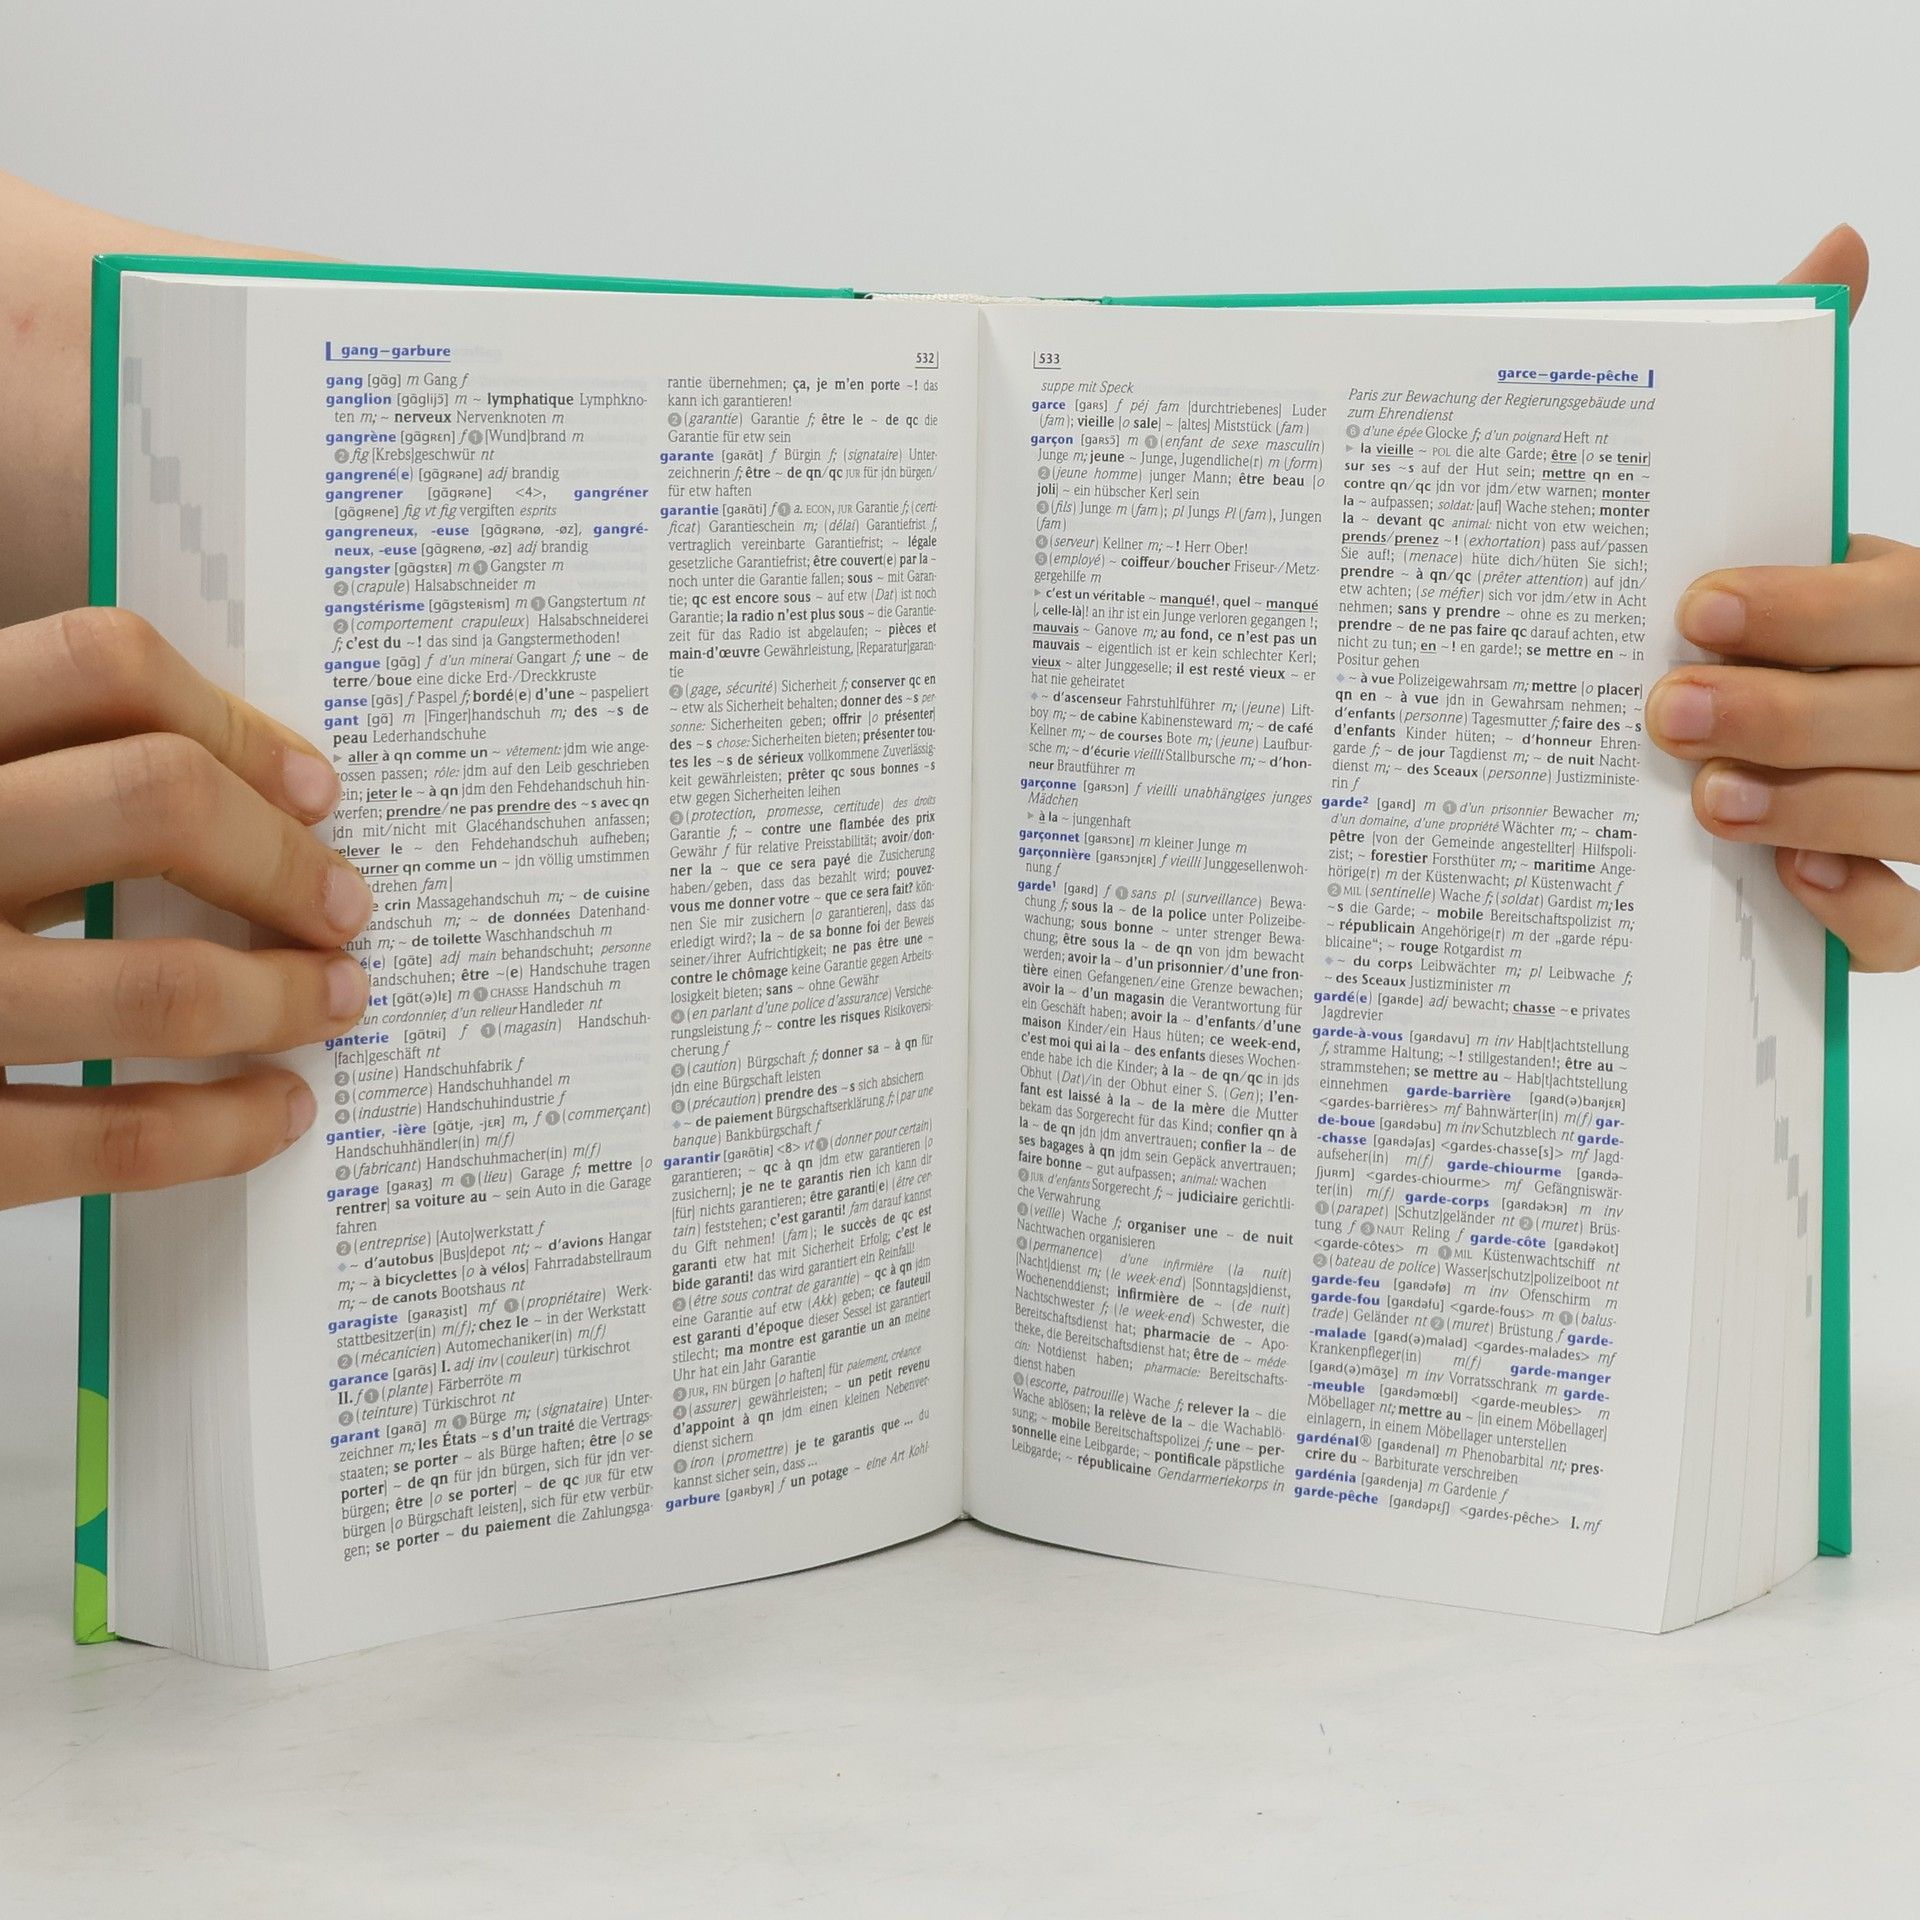 gang–garbure
532
gang [gɑ̃g] m Gang f
ganglion [gɑ̃glijɔ̃] m ~ lymphatique Lymphkno-
ten m; ~ nerveux Nervenknoten m
gangrène [gɑ̃gʀɛn] f ❶ [Wund]brand m
❷ fig [Krebs]geschwür nt
gangrené(e) [gɑ̃gʀəne] adj brandig
gangrener [gɑ̃gʀəne] <4>, gangréner
[gɑ̃gʀene] fig vt fig vergiften esprits
gangreneux, -euse [gɑ̃gʀənø, -øz], gangré-
neux, -euse [gɑ̃gʀenø, -øz] adj brandig
gangster [gɑ̃gstɛʀ] m ❶ Gangster m
❷ (crapule) Halsabschneider m
gangstérisme [gɑ̃gsteʀism] m ❶ Gangstertum nt
❷ (comportement crapuleux) Halsabschneiderei
f; c'est du ~! das sind ja Gangstermethoden!
gangue [gɑ̃g] f d'un minerai Gangart f; une ~ de
terre/boue eine dicke Erd-/Dreckkruste
ganse [gɑ̃s] f Paspel f; bordé(e) d'une ~ paspeliert
gant [gɑ̃] m [Finger]handschuh m; des ~s de
peau Lederhandschuhe
▸ aller à qn comme un ~ vêtement: jdm wie ange-
gossen passen; rôle: jdm auf den Leib geschrieben
sein; jeter le ~ à qn jdm den Fehdehandschuh hin-
werfen; prendre/ne pas prendre des ~s avec qn
jdn mit/nicht mit Glacéhandschuhen anfassen;
relever le ~ den Fehdehandschuh aufheben;
qn comme un ~ jdn völlig umstimmen
drehen fam]
crin Massagehandschuh m; ~ de cuisine
m; ~ de données Datenhand-
m; ~ de toilette Waschhandschuh m
[gɑ̃te] adj main behandschuht; personne
Handschuhen; être ~(e) Handschuhe tragen
[gɑ̃t(ə)lɛ] m ❶ CHASSE Handschuh m
cordonnier, d'un relieur Handleder nt
ganterie [gɑ̃tʀi] f ❶ (magasin) Handschuh-
[fach]geschäft nt
❷ (usine) Handschuhfabrik f
❸ (commerce) Handschuhhandel m
❹ (industrie) Handschuhindustrie f
gantier, -ière [gɑ̃tje, -jɛʀ] m, f ❶ (commerçant)
Handschuhhändler(in) m(f)
❷ (fabricant) Handschuhmacher(in) m(f)
garage [gaʀaʒ] m ❶ (lieu) Garage f; mettre [o
rentrer] sa voiture au ~ sein Auto in die Garage
fahren
❷ (entreprise) [Auto]werkstatt f
◆ ~ d'autobus [Bus]depot nt; ~ d'avions Hangar
m; ~ à bicyclettes [o à vélos] Fahrradabstellraum
m; ~ de canots Bootshaus nt
garagiste [gaʀaʒist] mf ❶ (propriétaire) Werk-
stattbesitzer(in) m(f); chez le ~ in der Werkstatt
❷ (mécanicien) Automechaniker(in) m(f)
garance [gaʀɑ̃s] I. adj inv (couleur) türkischrot
II. f ❶ (plante) Färberröte m
❷ (teinture) Türkischrot nt
garant [gaʀɑ̃] m ❶ Bürge m; (signataire) Unter-
zeichner m; les États ~s d'un traité die Vertrags-
staaten; se porter ~ als Bürge haften; être [o se
porter] ~ de qn für jdn bürgen, sich für jdn ver-
bürgen; être [o se porter] ~ de qc JUR für etw
bürgen [o Bürgschaft leisten], sich für etw verbür-
gen; se porter ~ du paiement die Zahlungsga-
rantie übernehmen; ça, je m'en porte ~! das
kann ich garantieren!
❷ (garantie) Garantie f; être le ~ de qc die
Garantie für etw sein
garante [gaʀɑ̃t] f Bürgin f; (signataire) Unter-
zeichnerin f; être ~ de qn/qc JUR für jdn bürgen/
für etw haften
garantie [gaʀɑ̃ti] f ❶ a. ECON, JUR Garantie f; (certi-
ficat) Garantieschein m; (délai) Garantiefrist f,
vertraglich vereinbarte Garantiefrist; ~ légale
gesetzliche Garantiefrist; être couvert(e) par la ~
noch unter die Garantie fallen; sous ~ mit Garan-
tie; qc est encore sous ~ auf etw (Dat) ist noch
Garantie; la radio n'est plus sous ~ die Garantie-
zeit für das Radio ist abgelaufen; ~ pièces et
main-d'œuvre Gewährleistung, [Reparatur]garan-
tie
❷ (gage, sécurité) Sicherheit f; conserver qc en
~ etw als Sicherheit behalten; donner des ~s per-
sonne: Sicherheiten geben; offrir [o présenter]
des ~s chose: Sicherheiten bieten; présenter tou-
tes les ~s de sérieux vollkommene Zuverlässig-
keit gewährleisten; prêter qc sous bonnes ~s
etw gegen Sicherheiten leihen
❸ (protection, promesse, certitude) des droits
Garantie f; ~ contre une flambée des prix
Gewähr f für relative Preisstabilität; avoir/don-
ner la ~ que ce sera payé die Zusicherung
haben/geben, dass das bezahlt wird; pouvez-
vous me donner votre ~ que ce sera fait? kön-
nen Sie mir zusichern [o garantieren], dass das
erledigt wird?; la ~ de sa bonne foi der Beweis
seiner/ihrer Aufrichtigkeit; ne pas être une ~
contre le chômage keine Garantie gegen Arbeits-
losigkeit bieten; sans ~ ohne Gewähr
❹ (en parlant d'une police d'assurance) Versiche-
rungsleistung f; ~ contre les risques Risikoversi-
cherung f
❺ (caution) Bürgschaft f; donner sa ~ à qn für
jdn eine Bürgschaft leisten
❻ (précaution) prendre des ~s sich absichern
◆ ~ de paiement Bürgschaftserklärung f; (par une
banque) Bankbürgschaft f
garantir [gaʀɑ̃tiʀ] <8> vt ❶ (donner pour certain)
garantieren; ~ qc à qn jdm etw garantieren [o
zusichern]; je ne te garantis rien ich kann dir
[für] nichts garantieren; être garanti(e) (être cer-
tain) feststehen; c'est garanti! fam darauf kannst
du Gift nehmen! (fam); le succès de qc est
garanti etw hat mit Sicherheit Erfolg; c'est le
bide garanti! das wird garantiert ein Reinfall!
❷ (être sous contrat de garantie) ~ qc à qn jdm
eine Garantie auf etw (Akk) geben; ce fauteuil
est garanti d'époque dieser Sessel ist garantiert
stilecht; ma montre est garantie un an meine
Uhr hat ein Jahr Garantie
❸ JUR, FIN bürgen [o haften] für paiement, créance
❹ (assurer) gewährleisten; ~ un petit revenu
d'appoint à qn jdm einen kleinen Nebenver-
dienst sichern
❺ iron (promettre) je te garantis que ... du
kannst sicher sein, dass ...
garbure [gaʀbyʀ] f un potage ~ eine Art Kohl-
533
garce–garde-pêche
suppe mit Speck
garce [gaʀs] f péj fam [durchtriebenes] Luder
(fam); vieille [o sale] ~ [altes] Miststück (fam)
garçon [gaʀsɔ̃] m ❶ (enfant de sexe masculin)
Junge m; jeune ~ Junge, Jugendliche(r) m (form)
❷ (jeune homme) junger Mann; être beau [o
joli] ~ ein hübscher Kerl sein
❸ (fils) Junge m (fam); pl Jungs Pl (fam), Jungen
(fam)
❹ (serveur) Kellner m; ~! Herr Ober!
❺ (employé) ~ coiffeur/boucher Friseur-/Metz-
gergehilfe m
▸ c'est un véritable ~ manqué!, quel ~ manqué
[, celle-là]! an ihr ist ein Junge verloren gegangen !;
mauvais ~ Ganove m; au fond, ce n'est pas un
mauvais ~ eigentlich ist er kein schlechter Kerl;
vieux ~ alter Junggeselle; il est resté vieux ~ er
hat nie geheiratet
◆ ~ d'ascenseur Fahrstuhlführer m; (jeune) Lift-
boy m; ~ de cabine Kabinensteward m; ~ de café
Kellner m; ~ de courses Bote m; (jeune) Laufbur-
sche m; ~ d'écurie vieilli Stallbursche m; ~ d'hon-
neur Brautführer m
garçonne [gaʀsɔn] f vieilli unabhängiges junges
Mädchen
▸ à la ~ jungenhaft
garçonnet [gaʀsɔnɛ] m kleiner Junge m
garçonnière [gaʀsɔnjɛʀ] f vieilli Junggesellenwoh-
nung f
garde¹ [gaʀd] f ❶ sans pl (surveillance) Bewa-
chung f; sous la ~ de la police unter Polizeibe-
wachung; sous bonne ~ unter strenger Bewa-
chung; être sous la ~ de qn von jdm bewacht
werden; avoir la ~ d'un prisonnier/d'une fron-
tière einen Gefangenen/eine Grenze bewachen;
avoir la ~ d'un magasin die Verantwortung für
ein Geschäft haben; avoir la ~ d'enfants/d'une
maison Kinder/ein Haus hüten; ce week-end,
c'est moi qui ai la ~ des enfants dieses Wochen-
ende habe ich die Kinder; à la ~ de qn/qc in jds
Obhut (Dat)/in der Obhut einer S. (Gen); l'en-
fant est laissé à la ~ de la mère die Mutter
bekam das Sorgerecht für das Kind; confier qn à
la ~ de qn jdn jdm anvertrauen; confier la ~ de
ses bagages à qn jdm sein Gepäck anvertrauen;
faire bonne ~ gut aufpassen; animal: wachen
❷ JUR d'enfants Sorgerecht f; ~ judiciaire gerichtli-
che Verwahrung
❸ (veille) Wache f; organiser une ~ de nuit
Nachtwachen organisieren
❹ (permanence) d'une infirmière (la nuit)
[Nacht]dienst m; (le week-end) [Sonntags]dienst,
Wochenenddienst; infirmière de ~ (de nuit)
Nachtschwester f; (le week-end) Schwester, die
Bereitschaftsdienst hat; pharmacie de ~ Apo-
theke, die Bereitschaftsdienst hat; être de ~ méde-
cin: Notdienst haben; pharmacie: Bereitschafts-
dienst haben
❺ (escorte, patrouille) Wache f; relever la ~ die
Wache ablösen; la relève de la ~ die Wachablö-
sung; ~ mobile Bereitschaftspolizei f; une ~ per-
sonnelle eine Leibgarde; ~ pontificale päpstliche
Leibgarde; ~ républicaine Gendarmeriekorps in
Paris zur Bewachung der Regierungsgebäude und
zum Ehrendienst
❻ d'une épée Glocke f; d'un poignard Heft nt
▸ la vieille ~ POL die alte Garde; être [o se tenir]
sur ses ~s auf der Hut sein; mettre qn en ~
contre qn/qc jdn vor jdm/etw warnen; monter
la ~ aufpassen; soldat: [auf] Wache stehen; monter
la ~ devant qc animal: nicht von etw weichen;
prends/prenez ~! (exhortation) pass auf/passen
Sie auf!; (menace) hüte dich/hüten Sie sich!;
prendre ~ à qn/qc (prêter attention) auf jdn/
etw achten; (se méfier) sich vor jdm/etw in Acht
nehmen; sans y prendre ~ ohne es zu merken;
prendre ~ de ne pas faire qc darauf achten, etw
nicht zu tun; en ~! en garde!; se mettre en ~ in
Positur gehen
◆ ~ à vue Polizeigewahrsam m; mettre [o placer]
qn en ~ à vue jdn in Gewahrsam nehmen; ~
d'enfants (personne) Tagesmutter f; faire des ~s
d'enfants Kinder hüten; ~ d'honneur Ehren-
garde f; ~ de jour Tagdienst m; ~ de nuit Nacht-
dienst m; ~ des Sceaux (personne) Justizministe-
rin f
garde² [gaʀd] m ❶ d'un prisonnier Bewacher m;
d'un domaine, d'une propriété Wächter m; ~ cham-
pêtre [von der Gemeinde angestellter] Hilfspoli-
zist; ~ forestier Forsthüter m; ~ maritime Ange-
hörige(r) m der Küstenwacht; pl Küstenwacht f
❷ MIL (sentinelle) Wache f; (soldat) Gardist m; les
~s die Garde; ~ mobile Bereitschaftspolizist m;
~ républicain Angehörige(r) m der „garde répu-
blicaine“; ~ rouge Rotgardist m
◆ ~ du corps Leibwächter m; pl Leibwache f;
~ des Sceaux Justizminister m
gardé(e) [gaʀde] adj bewacht; chasse ~e privates
Jagdrevier
garde-à-vous [gaʀdavu] m inv Hab[t]achtstellung
f, stramme Haltung; ~! stillgestanden!; être au ~
strammstehen; se mettre au ~ Hab[t]achtstellung
einnehmen garde-barrière [gaʀd(ə)baʀjɛʀ]
<gardes-barrières> mf Bahnwärter(in) m(f) gar-
de-boue [gaʀdəbu] m inv Schutzblech nt garde-
-chasse [gaʀdəʃas] <gardes-chasse[s]> mf Jagd-
aufseher(in) m(f) garde-chiourme [gaʀdə-
ʃjuʀm] <gardes-chiourme> mf Gefängniswär-
ter(in) m(f) garde-corps [gaʀdəkɔʀ] m inv
❶ (parapet) [Schutz]geländer nt ❷ (muret) Brüs-
tung f ❸ NAUT Reling f garde-côte [gaʀdəkot]
<garde-côtes> m ❶ MIL Küstenwachtschiff nt
❷ (bateau de police) Wasser[schutz]polizeiboot nt
garde-feu [gaʀdəfø] m inv Ofenschirm m
garde-fou [gaʀdəfu] <garde-fous> m ❶ (balus-
trade) Geländer nt ❷ (muret) Brüstung f garde-
-malade [gaʀd(ə)malad] <gardes-malades> mf
Krankenpfleger(in) m(f) garde-manger
[gaʀd(ə)mɑ̃ʒe] m inv Vorratsschrank m garde-
-meuble [gaʀdəmœbl] <garde-meubles> m
Möbellager nt; mettre au ~ [in einem Möbellager]
einlagern, in einem Möbellager unterstellen
gardénal® [gaʀdenal] m Phenobarbital nt; pres-
crire du ~ Barbiturate verschreiben
gardénia [gaʀdenja] m Gardenie f
garde-pêche [gaʀdəpɛʃ] <gardes-pêche> I. mf